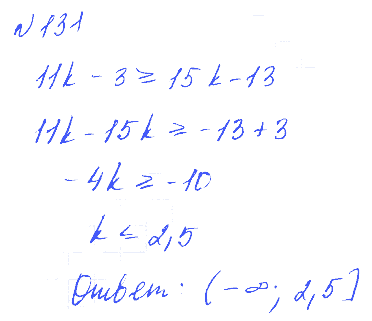 №131
11k - 3 ≥ 15k - 13
11k - 15k ≥ -13 + 3
-4k ≥ -10
k ≤ 2,5
Ответ: (-∞; 2,5]